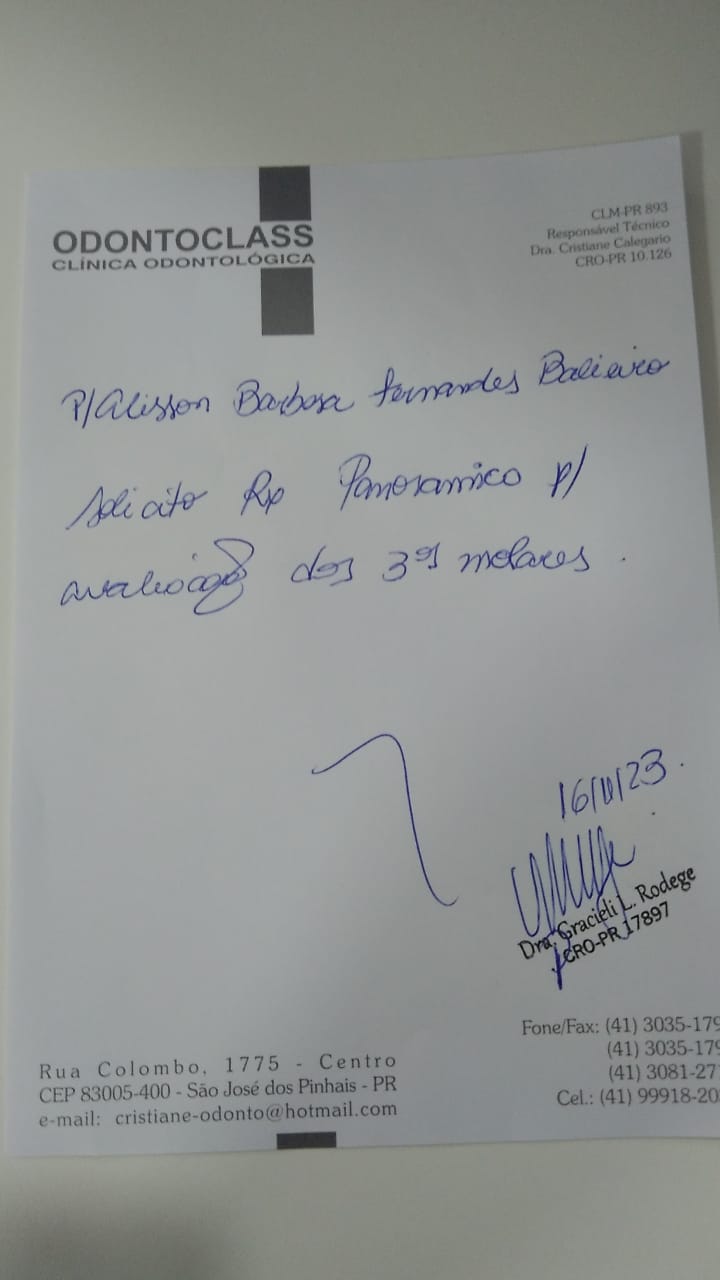 ODONTOCLASS
CLÍNICA ODONTOLÓGICA
CLM-PR 893
Responsável Técnico
Dra. Cristiane Calegario
CRO-PR 10.126
P/ Alisson Barbosa Fernandes Balieiro
Solicito Rx Panoramico p/
avaliação dos 3ºs molares.
16/11/23.
Dra. Gracieli L. Rodege
CRO-PR 17897
Rua Colombo, 1775 - Centro
CEP 83005-400 - São José dos Pinhais - PR
e-mail: cristiane-odonto@hotmail.com
Fone/Fax: (41) 3035-179
(41) 3035-179
(41) 3081-27
Cel.: (41) 99918-20